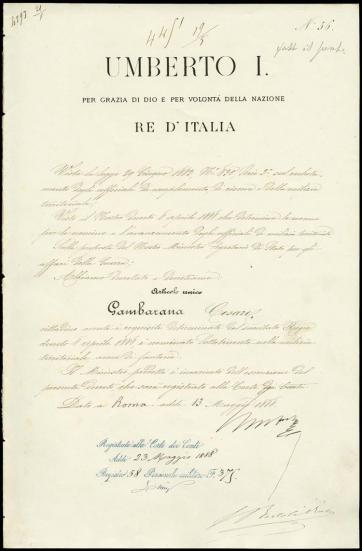 4451 19/5
N. 56.
UMBERTO I.
PER GRAZIA DI DIO E PER VOLONTÀ DELLA NAZIONE
RE D'ITALIA
Vista la legge 29 Giugno 1882, N.° 830 Serie 3.ª sul recluta-
mento degli ufficiali di complemento, di riserva e della milizia
territoriale;
Visto il Nostro decreto 8 aprile 1888 che determina le norme
per le nomine e l'avanzamento degli ufficiali di milizia territoriale
Sulla proposta del Nostro Ministro Segretario di Stato per gli
affari della Guerra;
Abbiamo decretato e decretiamo
Articolo unico
Gambarana Cesare,
cittadino avente i requisiti determinati dal succitato Regio
decreto 8 aprile 1888 è nominato sottotenente nella milizia
territoriale arma di fanteria.
Il Ministro predetto è incaricato dell'esecuzione del
presente decreto che sarà registrato alla Corte dei Conti.
Dato a Roma addì 13 Maggio 1888.
Umberto
Registrato alla Corte dei Conti
Addì 23 Maggio 1888
Registro 58 Personale militare F. 375.